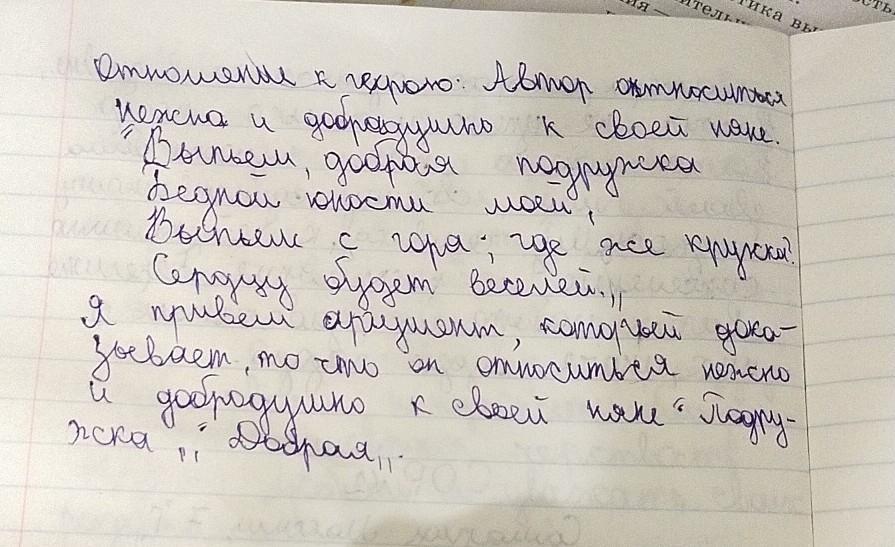 тика вы
Отношение к герою: Автор относиться
нежна и добродушно к своей няне.
"Выпьем, добрая подружка
Бедной юности моей,
Выпьем с горя; где же кружка?
Сердцу будет веселей.„
Я привел аргумент, который дока-
зывает, то что он относиться нежно
и добродушно к своей няне "Подру-
жка„ "Добрая„.